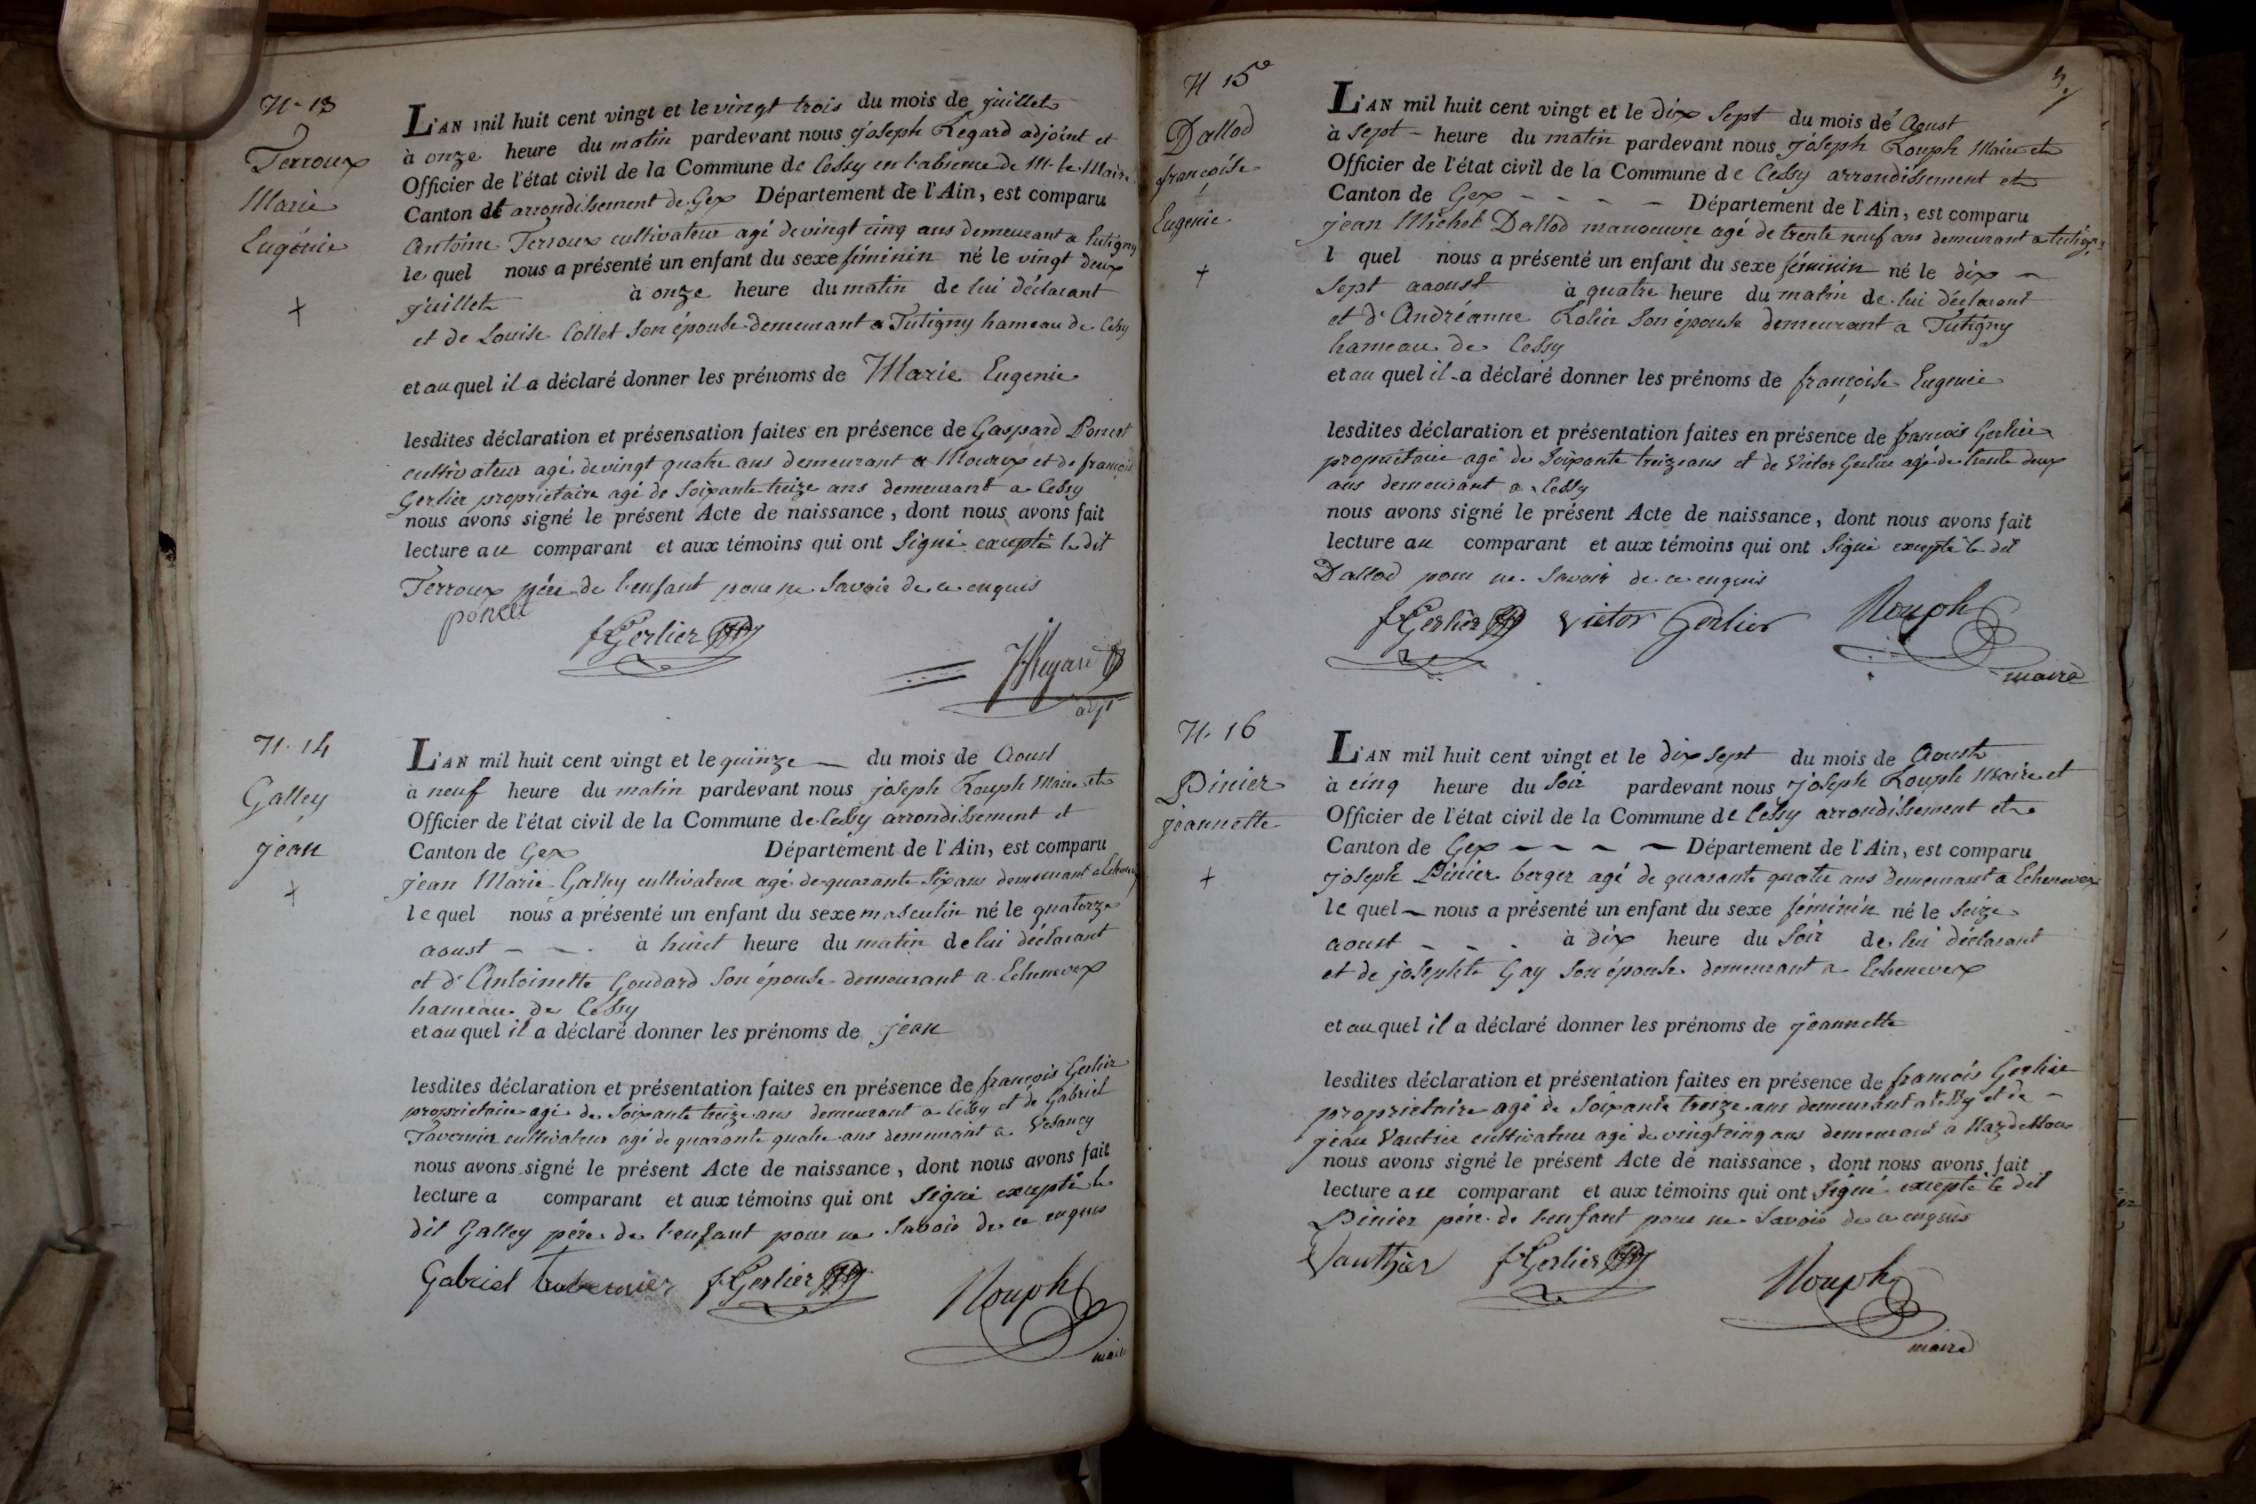 N. 13
Terroux
Marie
Eugénie
+
L'AN mil huit cent vingt et le vingt trois du mois de juillet
à onze heure du matin pardevant nous joseph Regard adjoint et
Officier de l'état civil de la Commune de Cessy en l'absence de Mr le Maire
Canton et arrondissement de Gex Département de l'Ain, est comparu
Antoine Terroux cultivateur agé de vingt cinq ans demeurant a Tutigny
le quel nous a présenté un enfant du sexe féminin né le vingt deux
juillet à onze heure du matin de lui déclarant
et de Louise Collet son épouse demeurant a Tutigny hameau de Cessy
et au quel il a déclaré donner les prénoms de Marie Eugenie
lesdites déclaration et présensation faites en présence de Gaspard Poncet
cultivateur agé de vingt quatre ans demeurant a Mourex et de francois
Gerlier proprietaire agé de soixante treize ans demeurant a Cessy
nous avons signé le présent Acte de naissance, dont nous avons fait
lecture au comparant et aux témoins qui ont signé excepté le dit
Terroux pére de l'enfant pour ne savoir de ce enquis
poncet
f Gerlier
J Regard
adjt
N. 14
Galley
jean
+
L'AN mil huit cent vingt et le quinze du mois de Aoust
à neuf heure du matin pardevant nous joseph Rouph Maire et
Officier de l'état civil de la Commune de Cessy arrondissement et
Canton de Gex Département de l'Ain, est comparu
jean Marie Galley cultivateur agé de quarante six ans demeurant a Echenevex
le quel nous a présenté un enfant du sexe masculin né le quatorze
aoust à huict heure du matin de lui déclarant
et d'Antoinette Goudard son épouse demeurant a Echenevex
hameau de Cessy
et au quel il a déclaré donner les prénoms de jean
lesdites déclaration et présentation faites en présence de françois Gerlier
proprietaire agé de soixante treize ans demeurant a Cessy et de Gabriel
Tavernier cultivateur agé de quarante quatre ans demeurant a Vesancy
nous avons signé le présent Acte de naissance, dont nous avons fait
lecture a comparant et aux témoins qui ont signé excepté le
dit Galley pére de l'enfant pour ne savoir de ce enquis
Gabriel
f Gerlier
Rouph
maire
N 15e
Dallod
françoise
Eugenie
+
L'AN mil huit cent vingt et le dix sept du mois de Aoust
à sept heure du matin pardevant nous joseph Rouph Maire et
Officier de l'état civil de la Commune de Cessy arrondissement et
Canton de Gex Département de l'Ain, est comparu
jean Michel Dallod manoeuvre agé de trente neuf ans demeurant a Tutigny
l quel nous a présenté un enfant du sexe féminin né le dix
sept aaoust à quatre heure du matin de lui déclarant
et d'Andréanne Rolier son épouse demeurant a Tutigny
hameau de Cessy
et au quel il a déclaré donner les prénoms de françoise Eugenie
lesdites déclaration et présentation faites en présence de francois Gerlier
proprietaire agé de soixante treize ans et de Victor Gerlier agé de trente deux
ans demeurant a Cessy
nous avons signé le présent Acte de naissance, dont nous avons fait
lecture au comparant et aux témoins qui ont signé excepté le dit
Dallod pour ne savoir de ce enquis
f Gerlier
Victor Gerlier
Rouph
maire
N. 16
Pinier
jeannette
+
L'AN mil huit cent vingt et le dix sept du mois de Aoust
à cinq heure du soir pardevant nous joseph Rouph Maire et
Officier de l'état civil de la Commune de Cessy arrondissement et
Canton de Gex Département de l'Ain, est comparu
joseph Pinier berger agé de quarante quatre ans demeurant a Echenevex
le quel nous a présenté un enfant du sexe féminin né le seize
aoust à dix heure du soir de lui déclarant
et de josephte Gay son épouse demeurant a Echenevex
et au quel il a déclaré donner les prénoms de jeannette
lesdites déclaration et présentation faites en présence de francois Gerlier
proprietaire agé de soixante treize ans demeurant a Cessy et de
jean Vautier cultivateur agé de vingt cinq ans demeurant a
nous avons signé le présent Acte de naissance, dont nous avons fait
lecture au comparant et aux témoins qui ont signé excepté le dit
Pinier pére de l'enfant pour ne savoir de ce enquis
Vauthier
f Gerlier
Rouph
maire